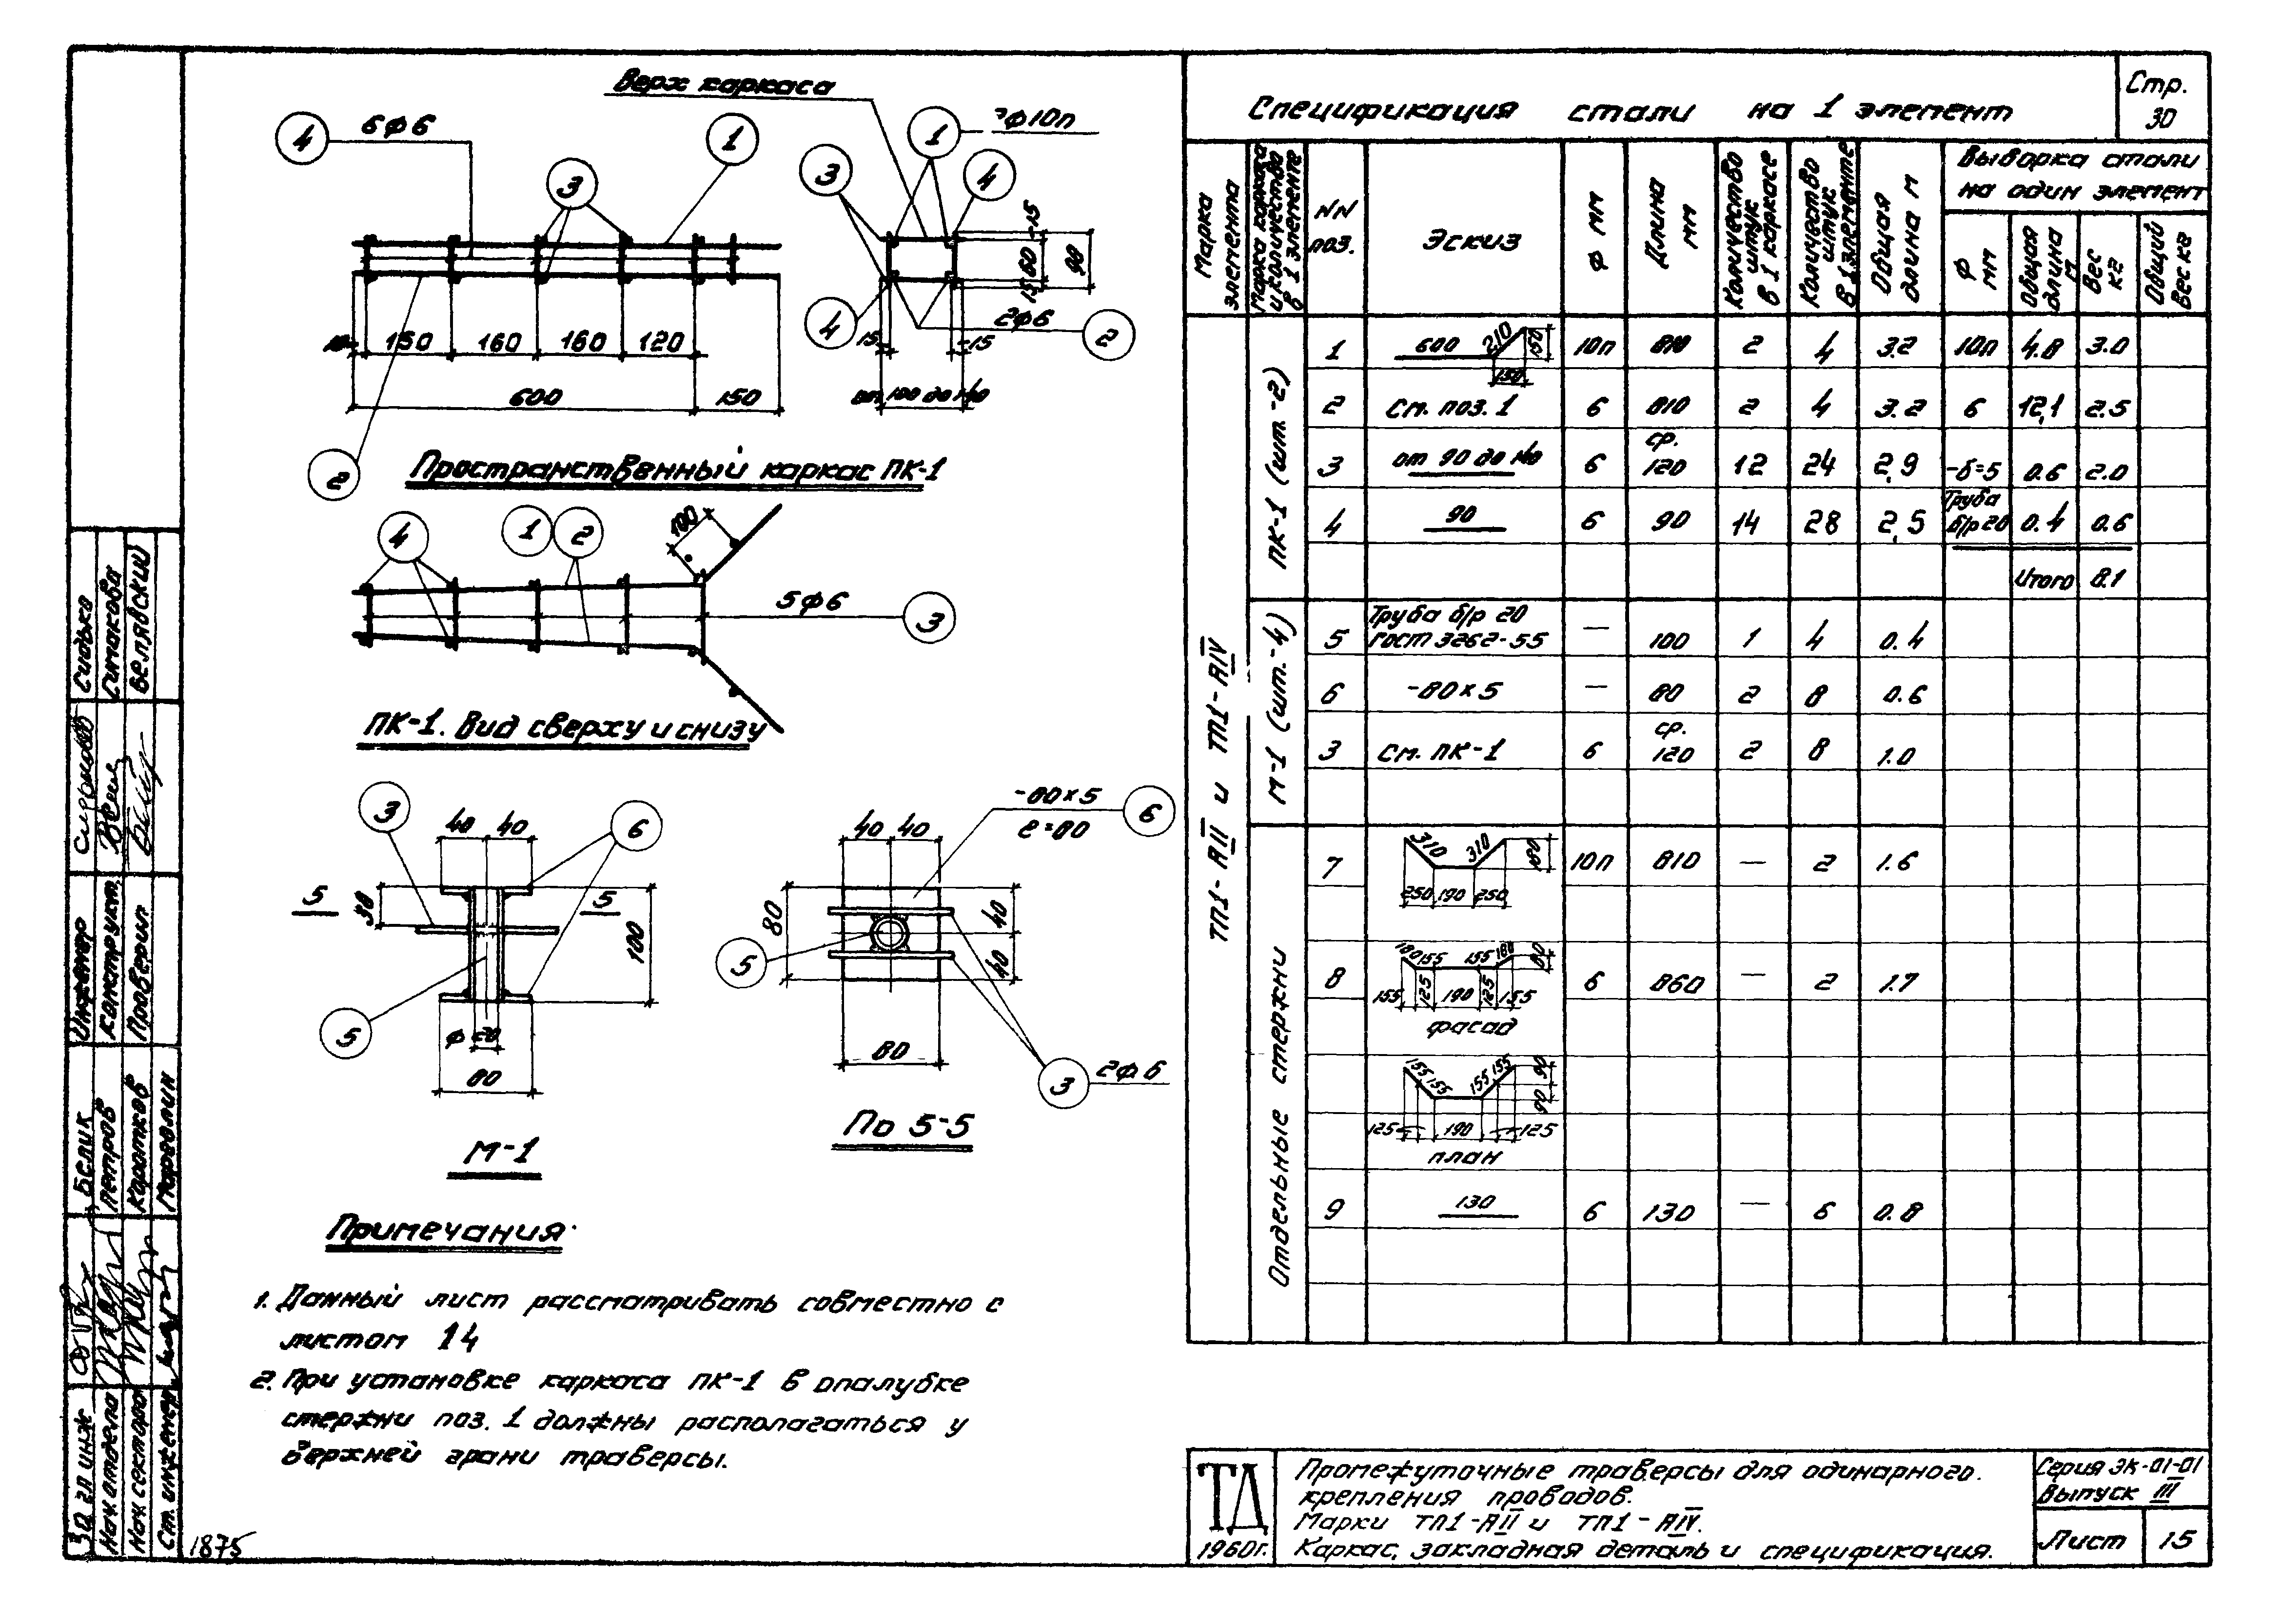 Верх каркаса
4
6ф6
1
3
1
ф10п
3
4
15
60
15
90
4
2ф6
2
15
15
от 100 до 140
10
150
160
160
120
600
150
2
Пространственный каркас ПК-1
4
1
2
100
5ф6
3
ПК-1. Вид сверху и снизу
3
40
40
6
5
5
30
100
5
ф 20
80
М-1
-80×5
ℓ=80
6
40
40
80
40
40
5
80
3
2ф6
По 5-5
Примечания
1. Данный лист рассматривать совместно с
листом 14
2. При установке каркаса ПК-1 в опалубке
стержни поз. 1 должны располагаться у
верхней грани траверсы.
1875
Спецификация стали на 1 элемент
Стр.
30
Марка элемента
Марка каркаса и количество в 1 элементе
NN поз.
Эскиз
Ф мм
Длина мм
Количество штук в 1 каркасе
Количество штук в 1 элементе
Общая длина м
Выборка стали
на один элемент
Ф мм
Общая длина м
Вес кг
Общий вес кг
ТП1-АII и ТП1-АIV
ПК-1 (шт.-2)
1 600 210 150 150 10п 810 2 4 3.2 10п 4.8 3.0
2 См. поз. 1 6 810 2 4 3.2 6 12,1 2.5
3 от 90 до 140 6 ср. 120 12 24 2,9 -δ=5 0.6 2.0
4 90 6 90 14 28 2,5 Труба б/р 20 0.4 0.6
Итого 8.1
М-1 (шт.-4)
5 Труба б/р 20 ГОСТ 3262-55 — 100 1 4 0.4
6 -80×5 — 80 2 8 0.6
3 См. ПК-1 6 ср. 120 2 8 1.0
Отдельные стержни
7 310 310 180 250 190 250 10п 810 — 2 1.6
8 180 155 155 180 80 155 125 190 125 155 6 860 — 2 1.7
фасад
155 155 155 155 90 90 125 190 125
план
9 130 6 130 — 6 0.8
ТД
1960г.
Промежуточные траверсы для одинарного
крепления проводов.
Марки ТП1-АII и ТП1-АIV.
Каркас, закладная деталь и спецификация.
Серия ЭК-01-01
Выпуск III
Лист 15
Инженер
Конструкт.
Проверил
Сидько
Симакова
Белявский
Зд гл инж
Нач отдела
Нач сектора
Ст. инженер
Белик
Петров
Коротков